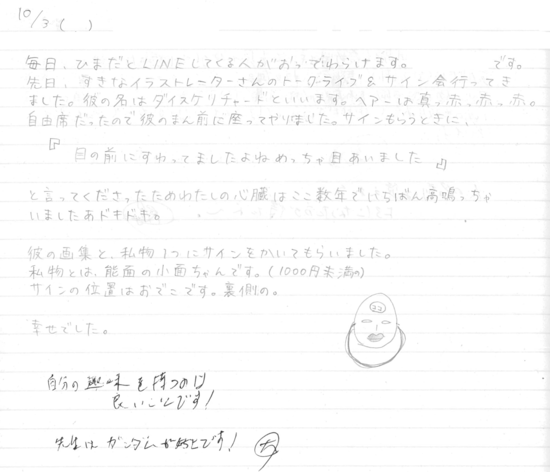 10/3 ( )
毎日、ひまだとLINEしてくる人がおってわらけます。 です。
先日、すきなイラストレーターさんのトークライブ&サイン会行ってき
ました。彼の名はダイスケリチャードといいます。ヘアーは真っ赤、赤っ赤。
自由席だったので彼のまん前に座ってやりました。サインもらうときに、
『 目の前にすわってましたよねめっちゃ目あいました 』
と言ってくださったためわたしの心臓はここ数年でいちばん高鳴っちゃ
いましたあドキドキ。
彼の画集と、私物1つにサインをかいてもらいました。
私物とは、能面の小面ちゃんです。(1000円未満の)
サインの位置はおでこです。裏側の。
幸せでした。
自分の趣味を持つのは
良いことです!
先生はガンダムが好きです!